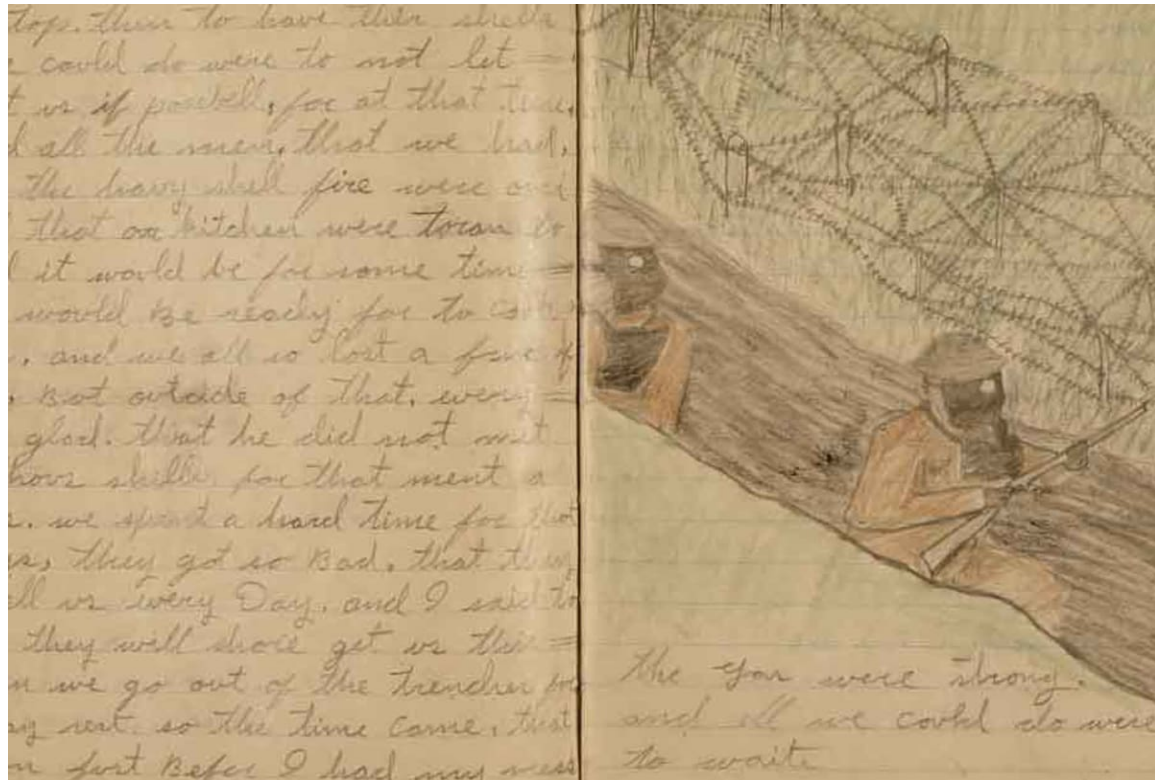 top. then to have their shells
could do were to not let =
us if possbell, for at that time.
all the men, that we had.
the heavy shell fire were our
that our kitchen were toran
it would be for some time =
would Be ready for to cook
. and we all so lost a few of
. But outside of that. every =
glad. that he did not met
shells for that ment a
. we spent a hard time for that
, they got so Bad. that they
us every Day. and I said to
they well shore get us this =
we go out of the trenches for
rest. so the time come, that
Befor I had my mess
the gas were strong.
and all we could do were
to waite